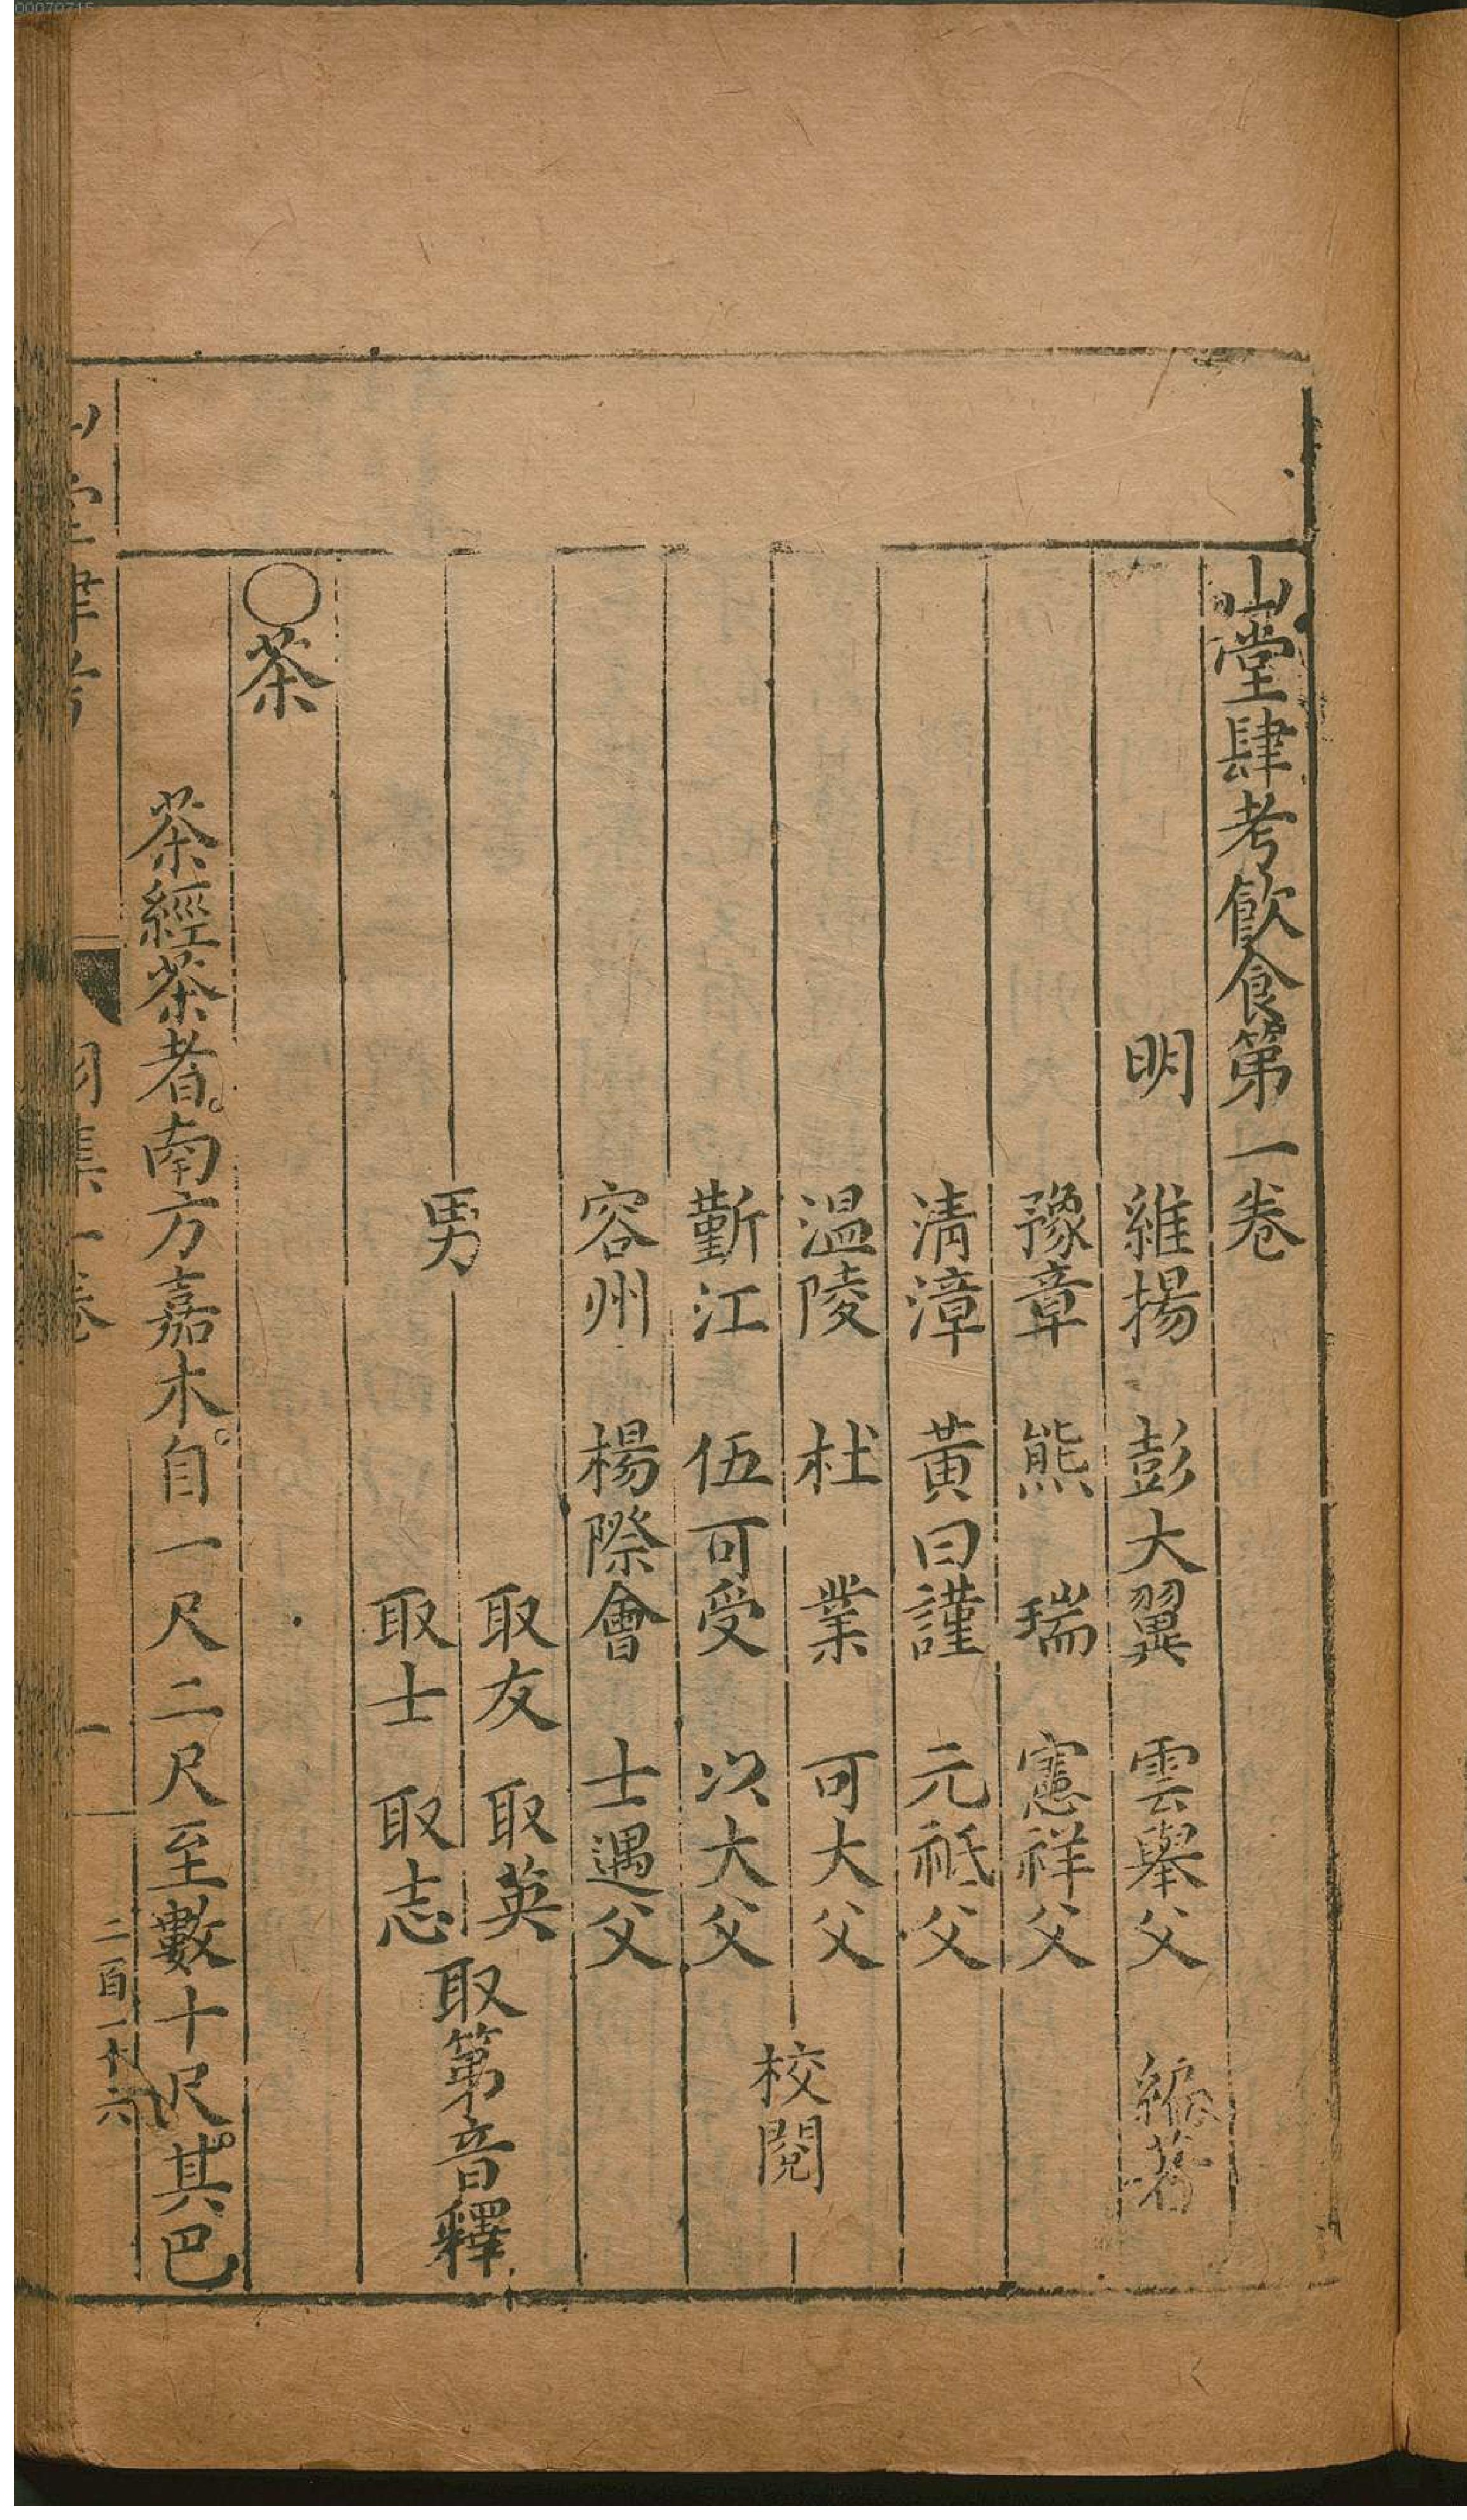 山堂肆考飲食第一卷
明 維揚 彭大翼 雲舉父 編著
豫章 熊 瑞 憲祥父
清漳 黃曰謹 元祗父
温陵 杜 業 可大父
校閱
鄞江 伍可受 以大父
容州 楊際會 士遇父
男
取友 取英
取士 取志
取第音釋
○茶
茶經茶者。南方嘉木。自一尺二尺至數十尺。其巴
山堂肆考
羽集一卷
一
二百一十六
00070715